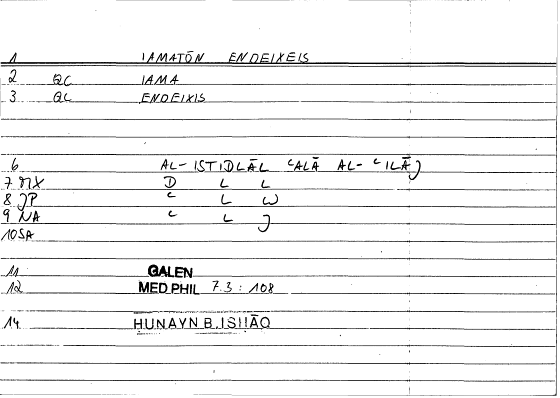 1 IAMATŌN ENDEIXEIS
2 QC IAMA
3 QC ENDEIXIS
6 AL- ISTIDLĀL ʿALĀ AL-ʿILĀJ
7 MX D L L
8 JP ʿ L W
9 NA ʿ L J
10 SA
11 GALEN
12 MED PHIL 7.3 : 108
14 HUNAYN B. ISHĀQ